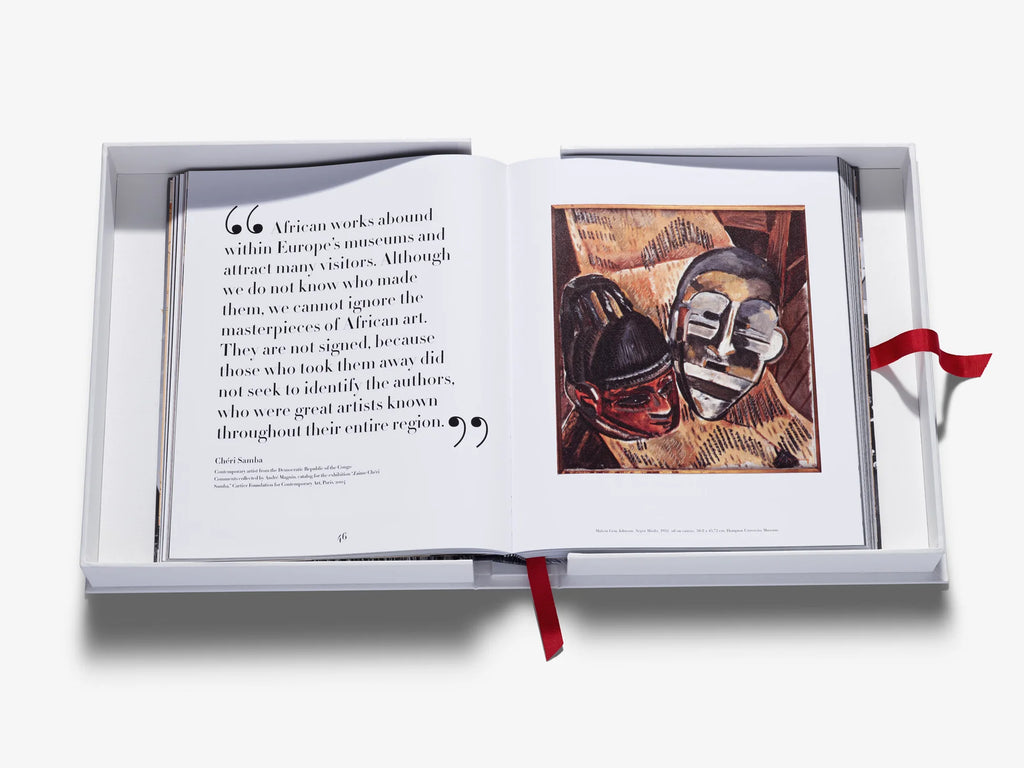 “ African works abound
within Europe’s museums and
attract many visitors. Although
we do not know who made
them, we cannot ignore the
masterpieces of African art.
They are not signed, because
those who took them away did
not seek to identify the authors,
who were great artists known
throughout their entire region. ”
Chéri Samba
Contemporary artist from the Democratic Republic of the Congo
Comments collected by André Magnin, catalog for the exhibition “J’aime Chéri
Samba,” Cartier Foundation for Contemporary Art, Paris, 2004
46
Malvin Gray Johnson, Negro Masks, 1932, oil on canvas, Hampton University Museum